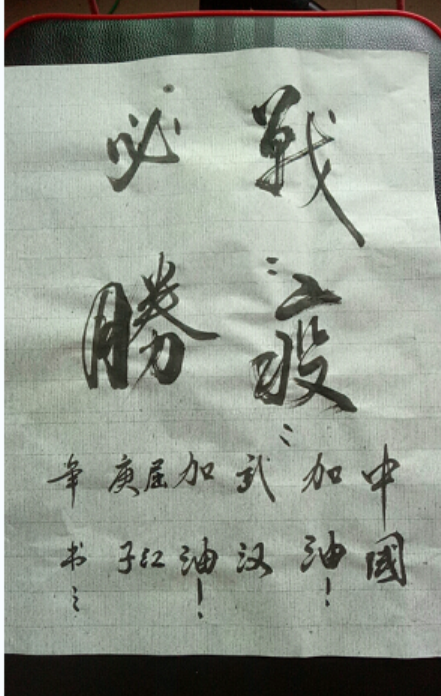 戰疫
必勝
中國
加油！
武汉
加油！
屈红
庚子
年书之